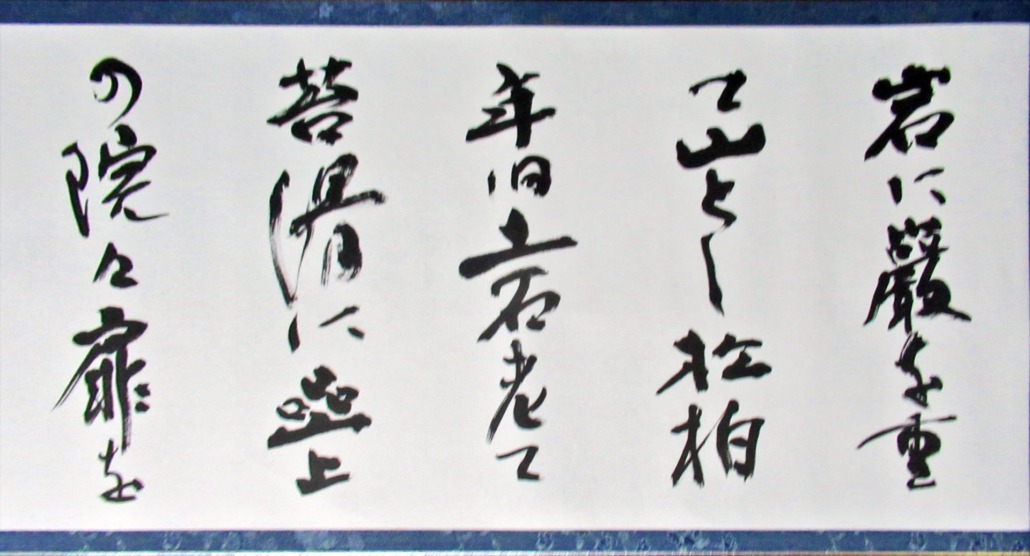 岩に巖を重
て山とし松柏
年旧土石老て
苔滑に岩上
の院々扉を